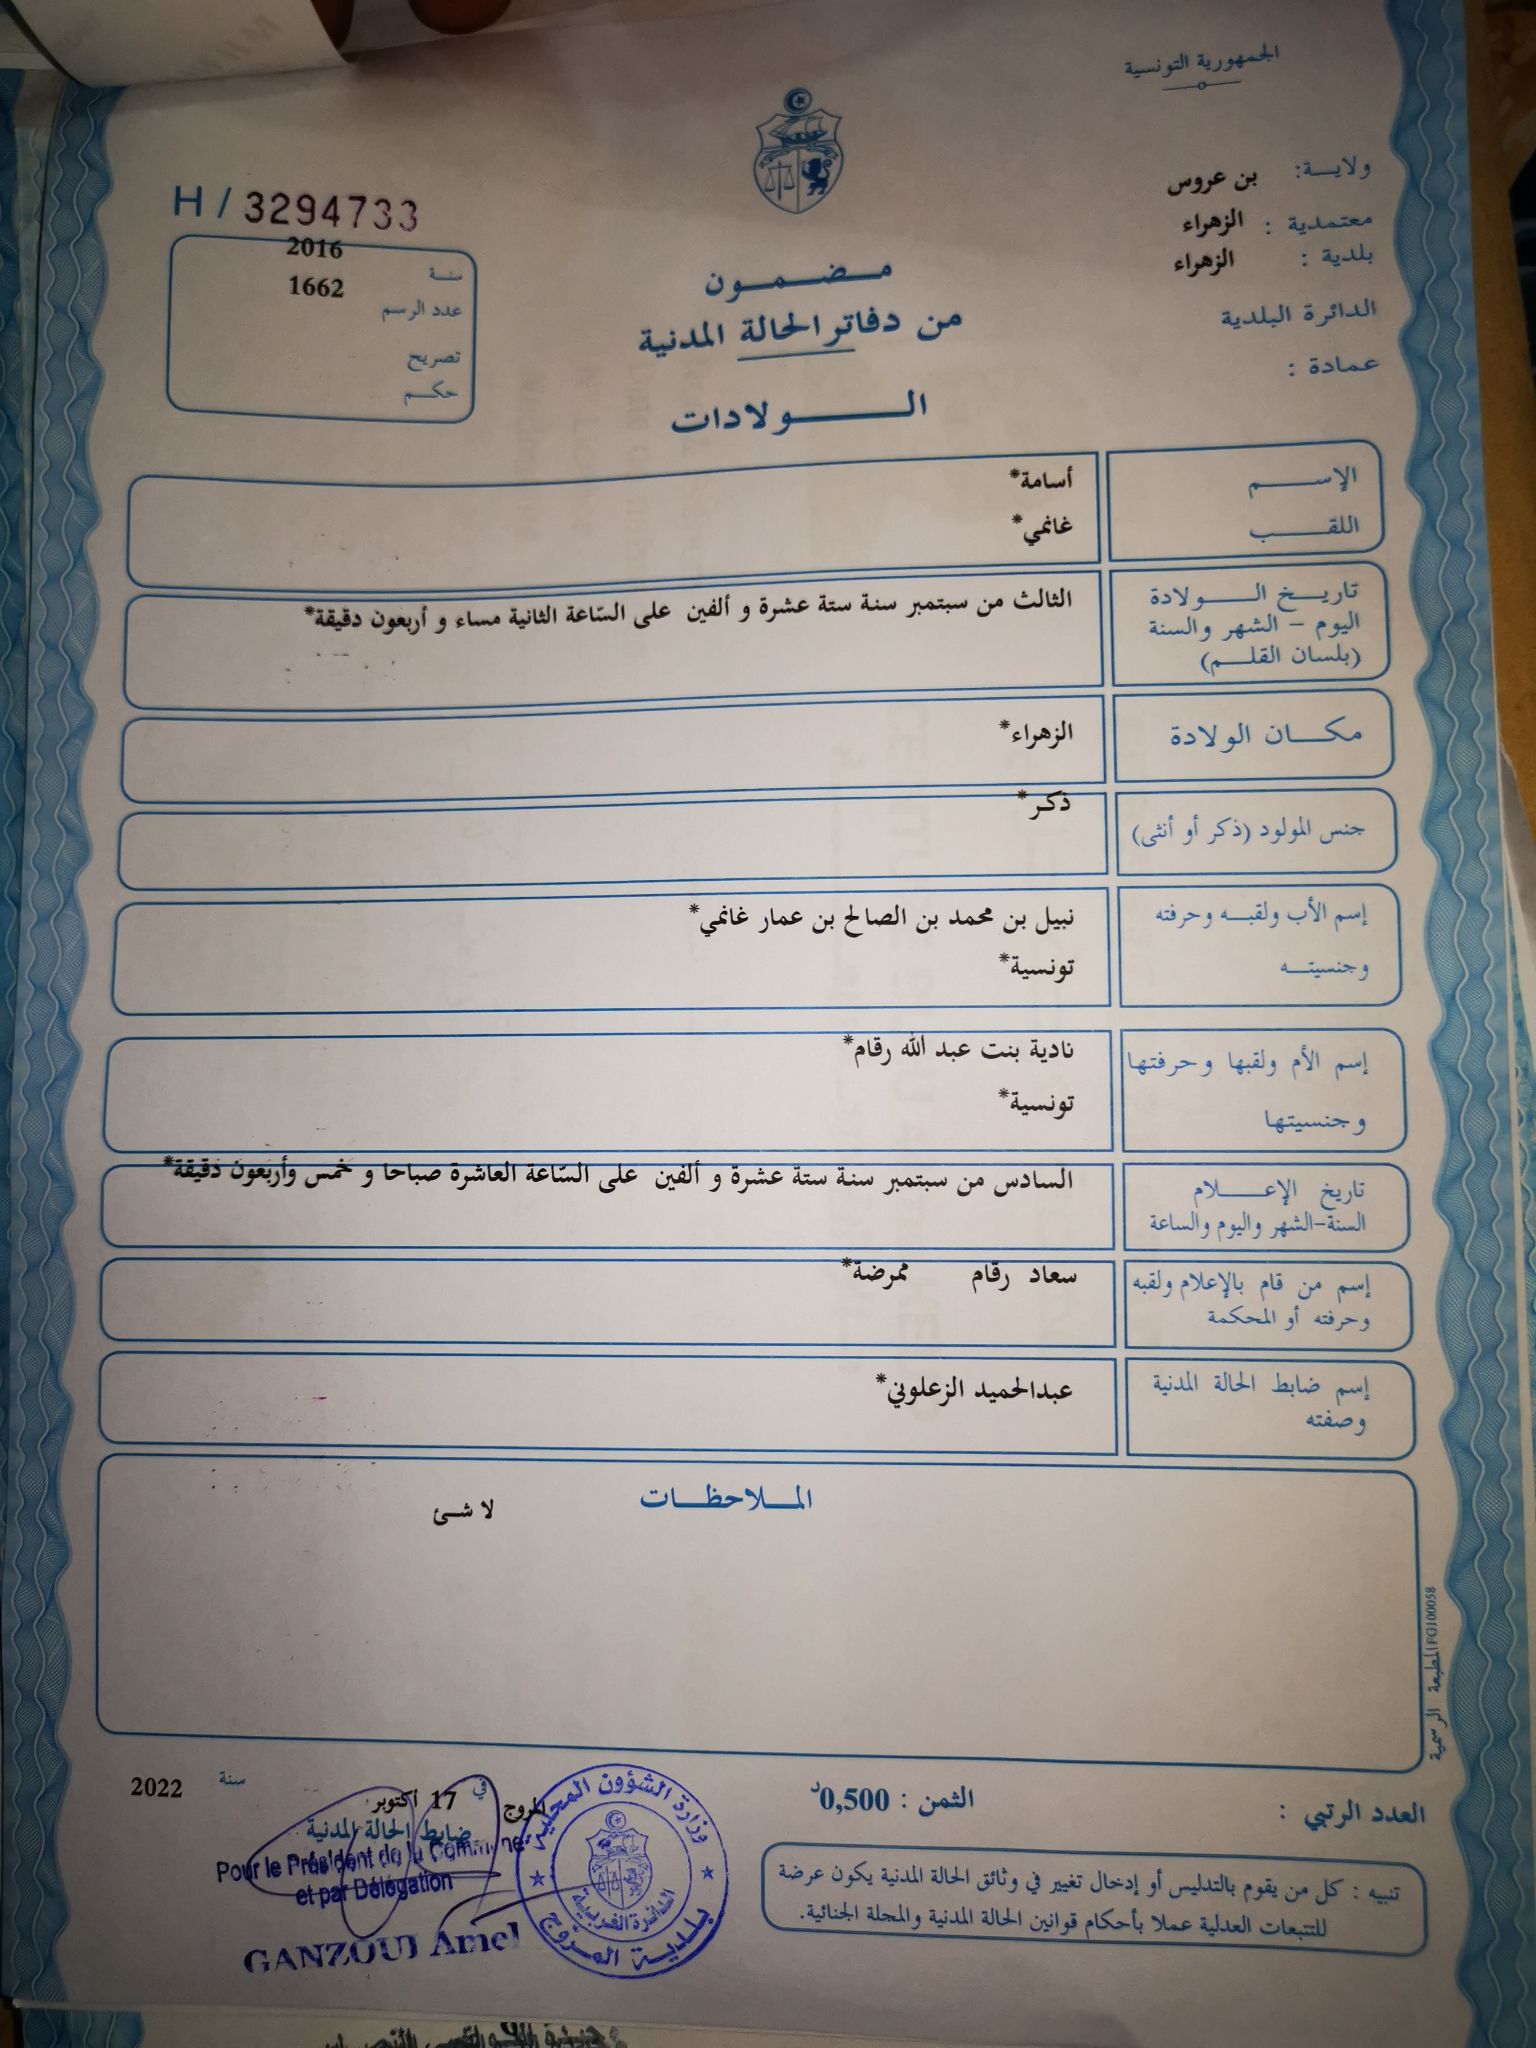 الجمهورية التونسية
ولايـــة: بن عروس
معتمدية : الزهراء
بلدية : الزهراء
الدائرة البلدية
عمادة :
H / 3294733
سنة 2016
عدد الرسم 1662
تصريح
حكم
مـضـمـون
من دفاتر الحالة المدنية
الـــولادات
الإســـم أسامة*
اللقـــب غانمي*
تاريـخ الـــولادة
اليوم - الشهر والسنة
(بلسان القلـم)
الثالث من سبتمبر سنة ستة عشرة و ألفين على السّاعة الثانية مساء و أربعون دقيقة*
مكـــان الولادة الزهراء*
جنس المولود (ذكر أو أنثى) ذكر*
إسم الأب ولقبـه وحرفته نبيل بن محمد بن الصالح بن عمار غانمي*
وجنسيتـه تونسية*
إسم الأم ولقبها وحرفتها نادية بنت عبد الله رقام*
وجنسيتها تونسية*
تاريخ الإعــــلام
السنة-الشهر واليوم والساعة
السادس من سبتمبر سنة ستة عشرة و ألفين على السّاعة العاشرة صباحا و خمس وأربعون دقيقة*
إسم من قام بالإعلام ولقبه
وحرفته أو المحكمة
سعاد رقام ممرضة*
إسم ضابط الحالة المدنية
وصفته
عبدالحميد الزعلوني*
المـــلاحظـــات
لا شئ
المطبعة الرسمية FG100058
العدد الرتبي :
الثمن : 0,500د
المروج في 17 أكتوبر سنة 2022
ضابط الحالة المدنية
Pour le Président de la Commune
et par Délégation
GANZOUI Amel
وزارة الشؤون المحلية
الدائرة الغربية
بلدية المروج
تنبيه : كل من يقوم بالتدليس أو إدخال تغيير في وثائق الحالة المدنية يكون عرضة
للتتبعات العدلية عملا بأحكام قوانين الحالة المدنية والمجلة الجنائية.